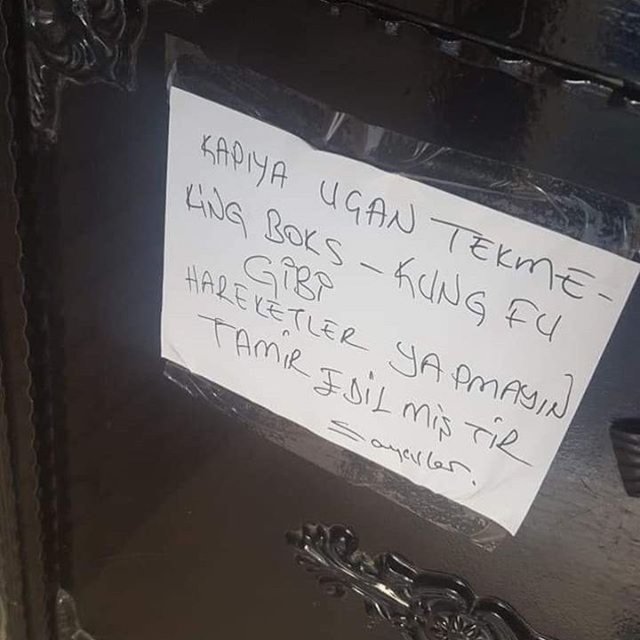 KAPIYA UGAN TEKME-
KİNG BOKS - KUNG FU
GİBİ
HAREKETLER YAPMAYIN
TAMİR EDİLMİŞTİR
Saygılar.